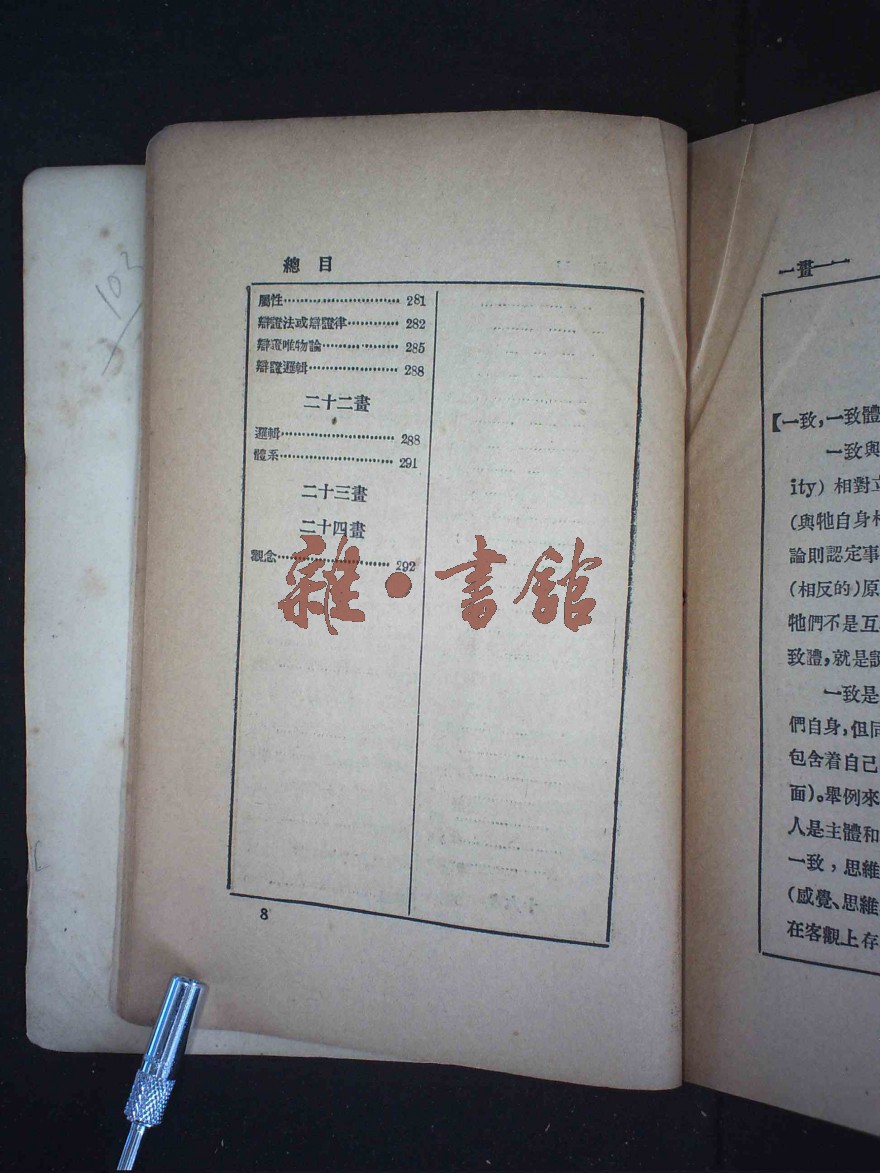 總目
屬性 281
辯證法或辯證律 282
辯證唯物論 285
辯證邏輯 288
二十二畫
邏輯 288
體系 291
二十三畫
二十四畫
觀念 292
8
雜·書館
103
一畫 一
【一致,一致體
一致與
ity) 相對立
(與牠自身相
論則認定事
(相反的)原
牠們不是互
致體,就是說
一致是
們自身,但同
包含着自己
面)。舉例來
人是主體和
一致,思維
(感覺、思維
在客觀上存